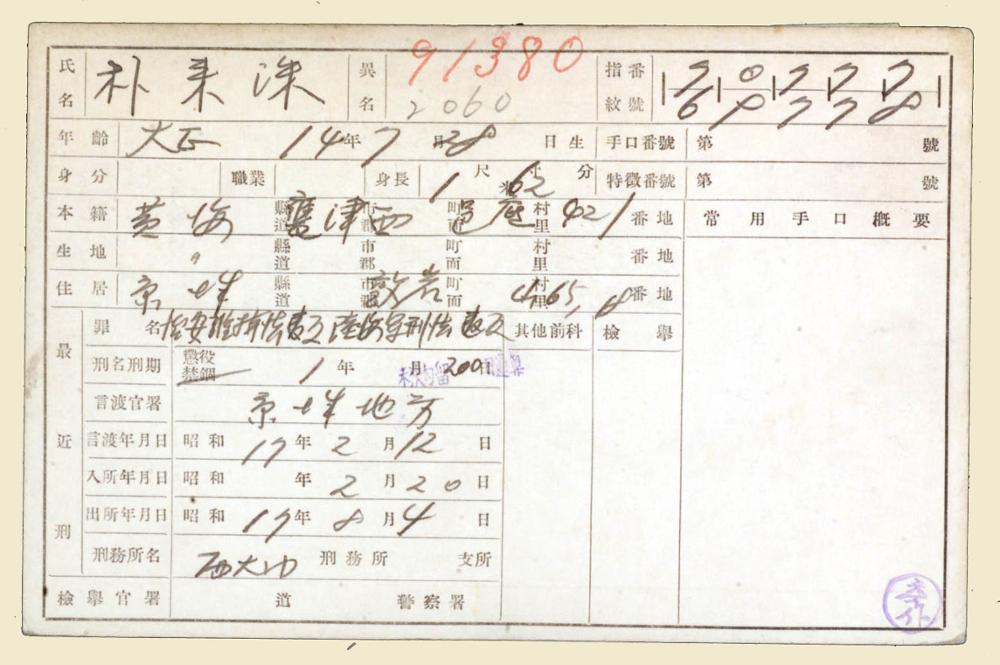 91380
氏名 朴来洙 異名 2060 指紋番號
年齡 大正 14年 7月 28日生 手口番號 第 號
身分 職業 身長 1尺 62寸 分 米 特徵番號 第 號
本籍 黃海 縣道 甕津 市郡 西 町面 邑 村里 421 番地 常用手口概要
生地 〃 縣道 市郡 町面 村里 番地
住居 京城 縣道 市郡 町面 村里 番地
最近刑 罪名 治安維持法違反 陸海軍刑法違反 其他前科 檢擧
刑名刑期 懲役 禁錮 1年 月 200日
言渡官署 京城地方
言渡年月日 昭和 17年 2月 12日
入所年月日 昭和 年 2月 20日
出所年月日 昭和 17年 8月 4日
刑務所名 西大門 刑務所 支所
檢擧官署 道 警察署